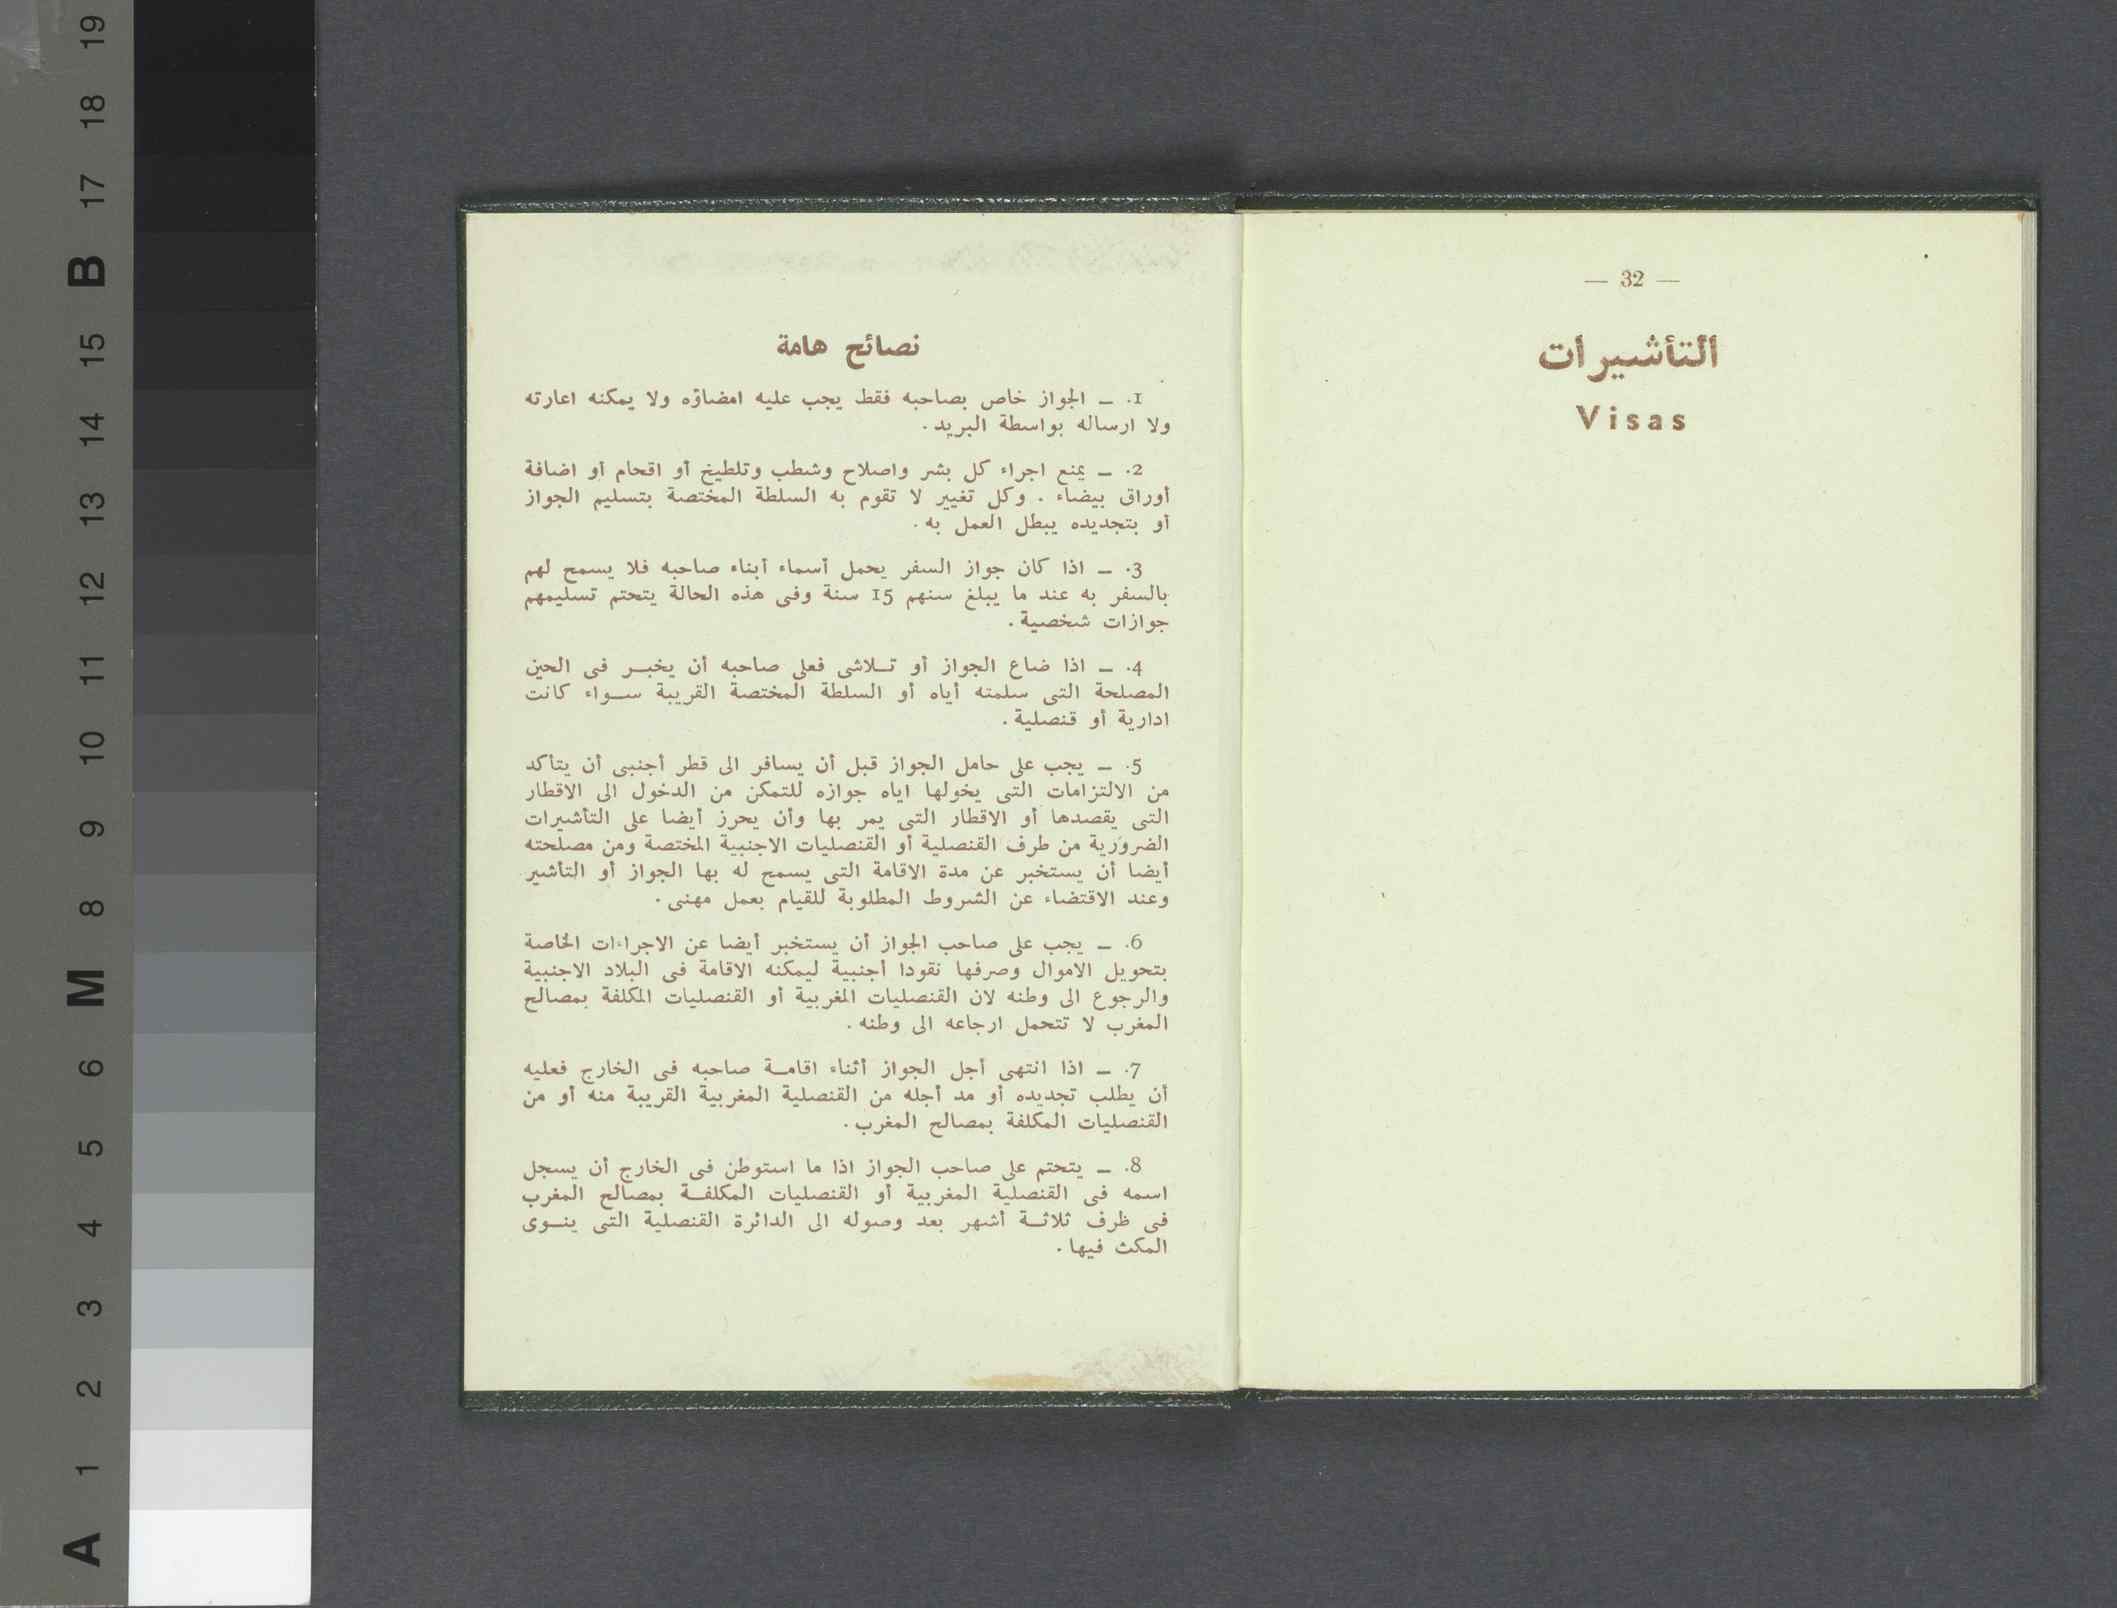 نصائح هامة
1. — الجواز خاص بصاحبه فقط يجب عليه امضاؤه ولا يمكنه اعارته
ولا ارساله بواسطة البريد.
2. — يمنع اجراء كل بشر واصلاح وشطب وتلطيخ أو اقحام أو اضافة
أوراق بيضاء . وكل تغيير لا تقوم به السلطة المختصة بتسليم الجواز
أو بتجديده يبطل العمل به.
3. — اذا كان جواز السفر يحمل أسماء أبناء صاحبه فلا يسمح لهم
بالسفر به عند ما يبلغ سنهم 15 سنة وفى هذه الحالة يتحتم تسليمهم
جوازات شخصية.
4. — اذا ضاع الجواز أو تـلاشى فعلى صاحبه أن يخبـر فى الحين
المصلحة التى سلمته أياه أو السلطة المختصة القريبة ســواء كانت
ادارية أو قنصلية.
5. — يجب على حامل الجواز قبل أن يسافر الى قطر أجنبى أن يتأكد
من الالتزامات التى يخولها اياه جوازه للتمكن من الدخول الى الاقطار
التى يقصدها أو الاقطار التى يمر بها وأن يحرز أيضا على التأشيرات
الضرورية من طرف القنصلية أو القنصليات الاجنبية المختصة ومن مصلحته
أيضا أن يستخبر عن مدة الاقامة التى يسمح له بها الجواز أو التأشير
وعند الاقتضاء عن الشروط المطلوبة للقيام بعمل مهنى.
6. — يجب على صاحب الجواز أن يستخبر أيضا عن الاجراءات الخاصة
بتحويل الاموال وصرفها نقودا أجنبية ليمكنه الاقامة فى البلاد الاجنبية
والرجوع الى وطنه لان القنصليات المغربية أو القنصليات المكلفة بمصالح
المغرب لا تتحمل ارجاعه الى وطنه.
7. — اذا انتهى أجل الجواز أثناء اقامـة صاحبه فى الخارج فعليه
أن يطلب تجديده أو مد أجله من القنصلية المغربية القريبة منه أو من
القنصليات المكلفة بمصالح المغرب.
8. — يتحتم على صاحب الجواز اذا ما استوطن فى الخارج أن يسجل
اسمه فى القنصلية المغربية أو القنصليات المكلفـة بمصالح المغرب
فى ظرف ثلاثـة أشهر بعد وصوله الى الدائرة القنصلية التى ينـوى
المكث فيها.
— 32 —
التأشيرات
Visas
19
18
17
B
15
14
13
12
11
10
9
8
M
6
5
4
3
2
1
A